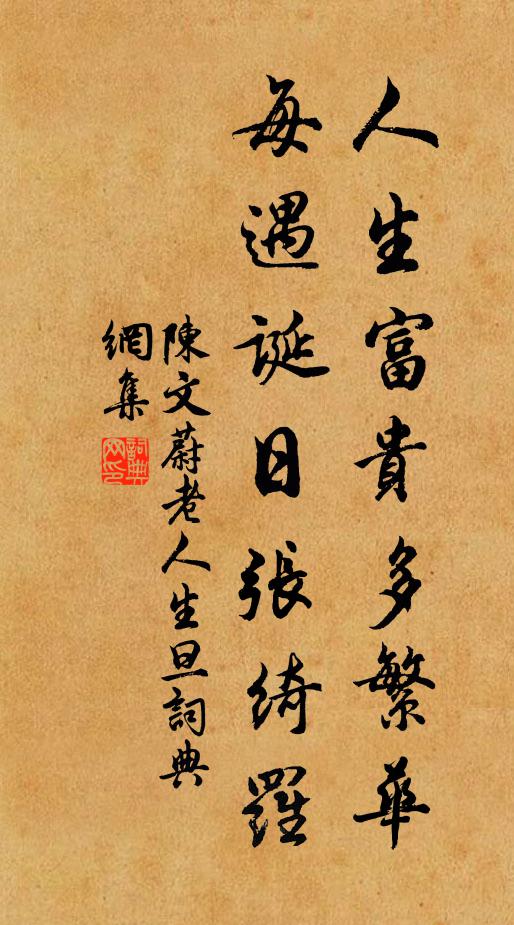 人生富貴多繁華
每遇誕日張綺羅
陳文蔚老人生旦詞典
網集
詞典網印